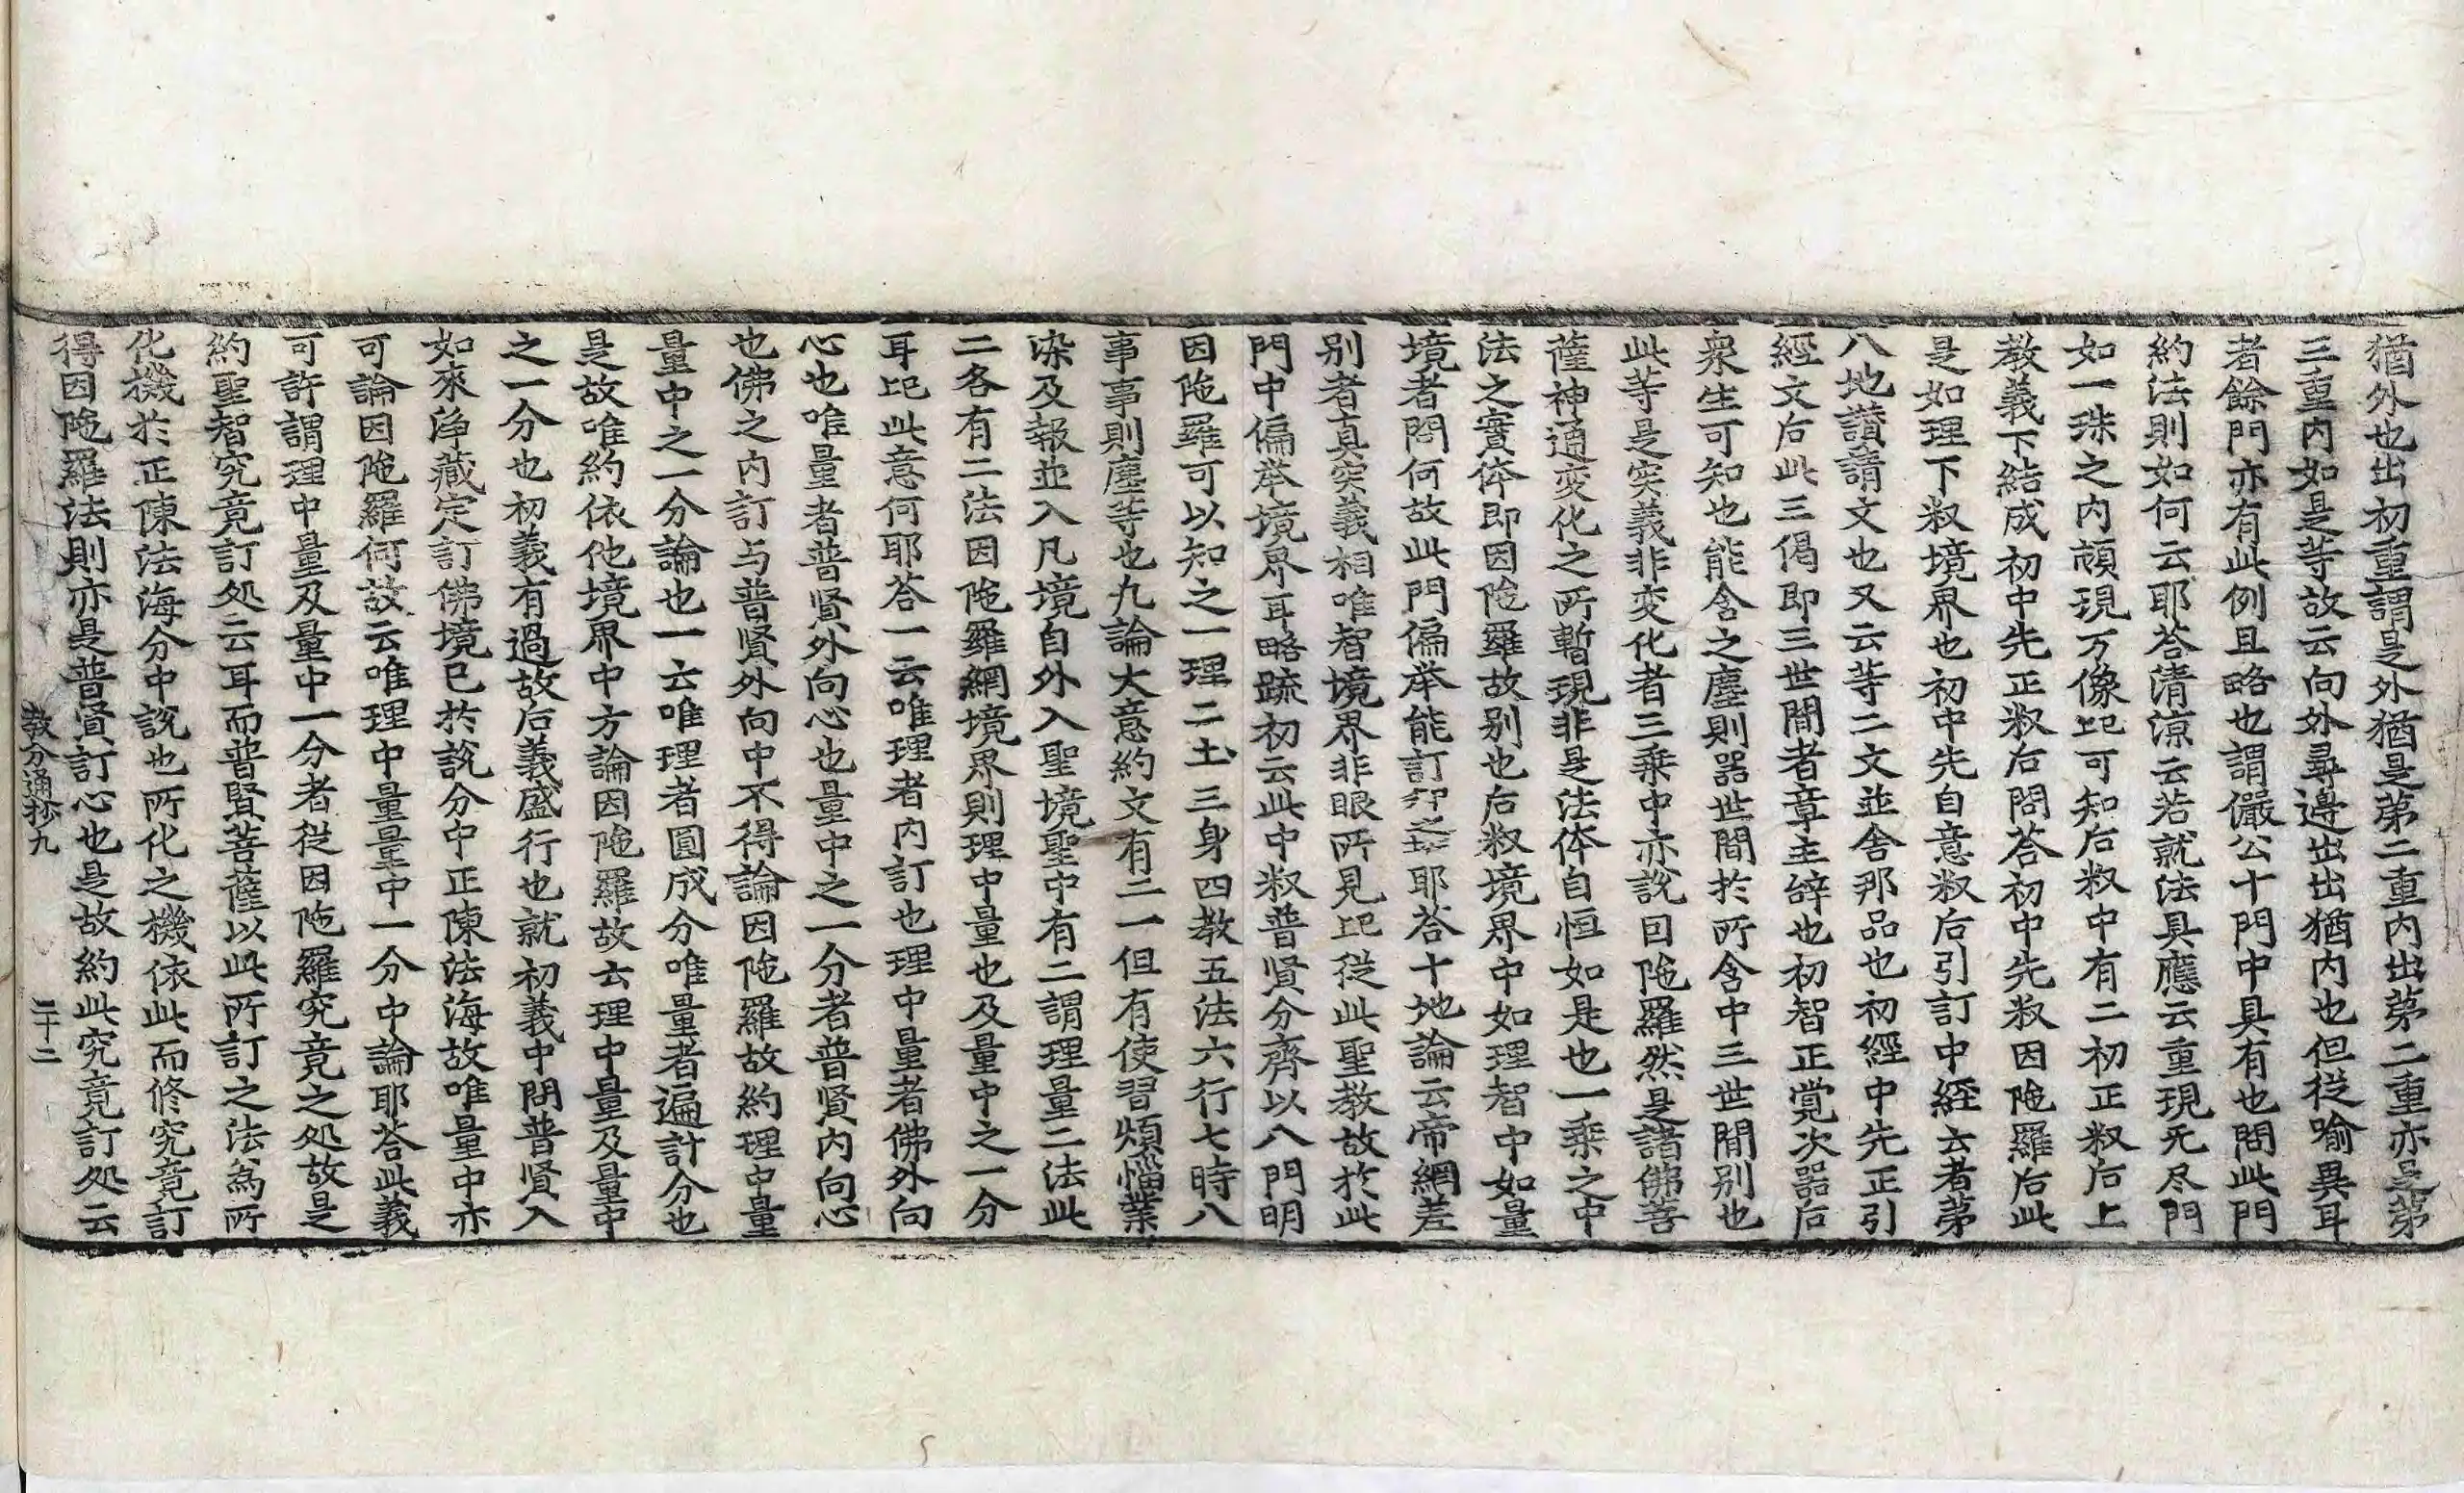 猶外也出初重謂是外猶是苐二重内出苐二重亦是苐
三重内如是等故云向外尋邊出出猶内也但從喻異耳
者餘門亦有此例且略也謂儼公十門中具有也問此門
約法則如何云耶荅清凉云若就法具應云重現无尽門
如一珠之内頓現万像比可知后𥼶中有二初正𥼶后上
教義下結成初中先正𥼶后問荅初中先𥼶因陁羅后此
是如理下𥼶境界也初中先自意𥼶后引訂中経云者苐
八地讃請文也又云等二文並舍那品也初經中先正引
經文后此三偈即三世間者章主辝也初智正覺次器后
衆生可知也能含之塵則器世間於所含中三世間别也
此等是实義非变化者三乗中亦說因陁羅然是諸佛菩
薩神通变化之所暫現非是法体自恒如是也一乗之中
法之實体即因陁羅故别也后𥼶境界中如理智中如量
境者問何故此門偏举能訂耶荅十地論云帝網差
别者真实義相唯智境界非眼所見比從此聖教故於此
門中偏举境界耳略䟽初云此中𥼶普賢分齊以八門明
因陁羅可以知之一理二土三身四教五法六行七時八
事事則塵等也九論大意約文有二一但有使習煩惱業
染及報並入凡境自外入聖境聖中有二謂理量二法此
二各有二法因陁羅網境界則理中量也及量中之一分
耳比此意何耶荅一云唯理者内訂也理中量者佛外向
心也唯量者普賢外向心也量中之一分者普賢内向心
也佛之内訂与普賢外向中不得論因陁羅故約理中量
量中之一分論也一云唯理者圓成分唯量者遍計分也
是故唯約依他境界中方論因陁羅故云理中量及量中
之一分也初義有過故后義盛行也就初義中問普賢入
如來淨藏定訂佛境已於說分中正陳法海故唯量中亦
可論因陁羅何故云唯理中量量中一分中論耶荅此義
可許謂理中量及量中一分者從因陁羅究竟之処故是
約聖智究竟訂処云耳而普賢菩薩以此所訂之法爲所
化機於正陳法海分中說也所化之機依此而修究竟訂
得因陁羅法則亦是普賢訂心也是故約此究竟訂処云
教分通抄九 三十二